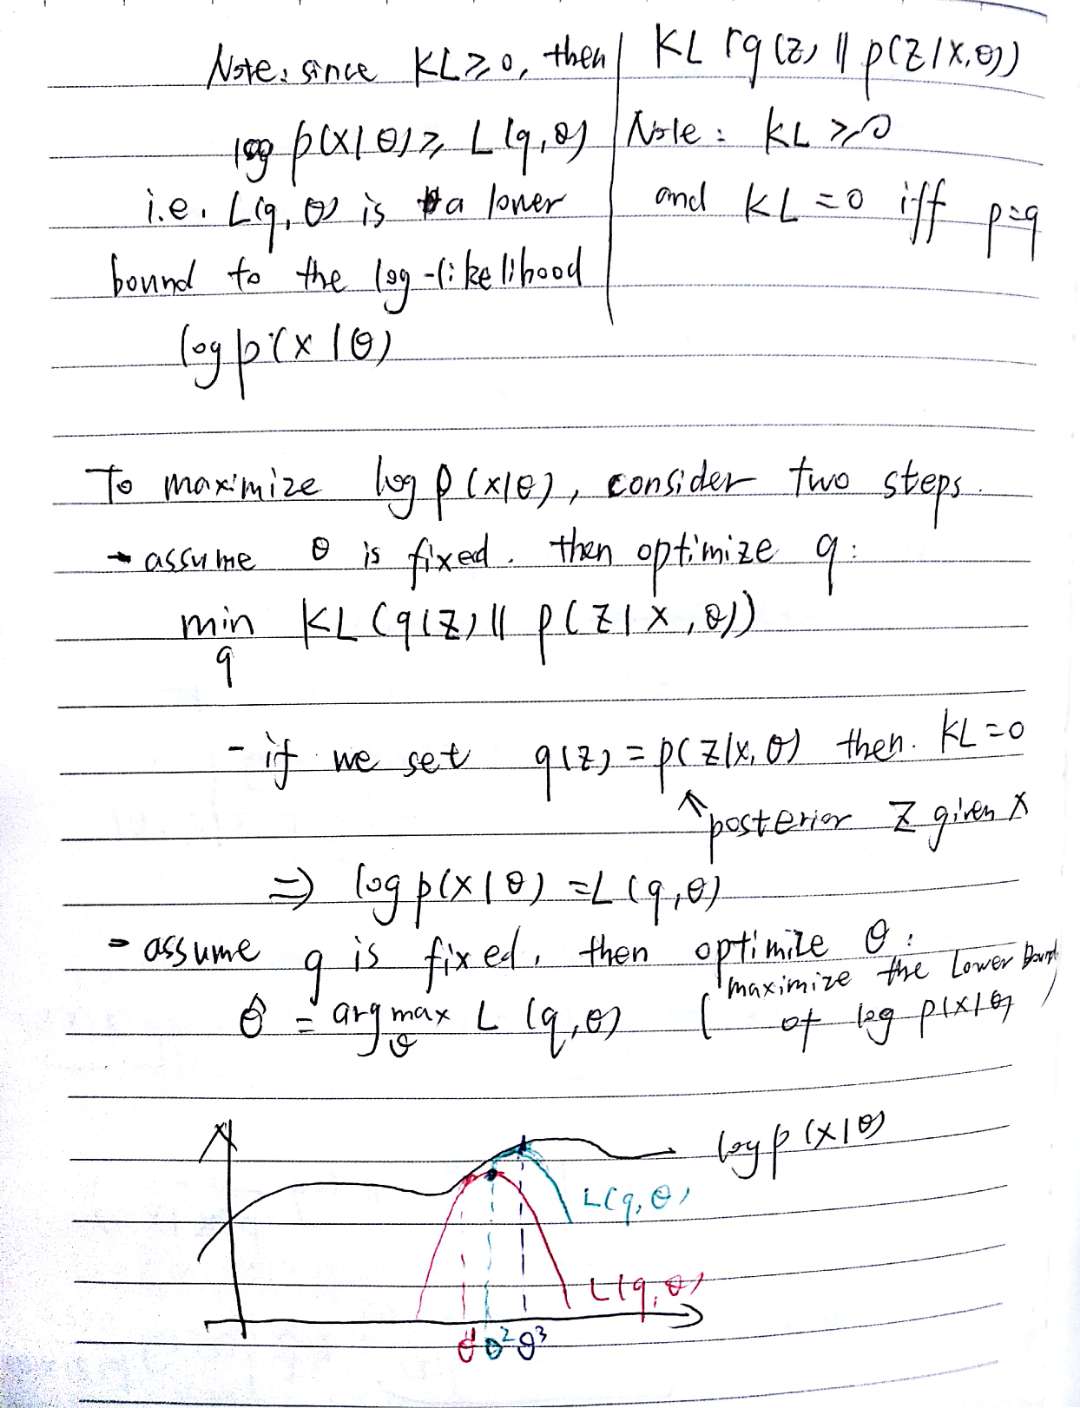 Note: since KL ≥ 0, then
log p(X|θ) ≥ L(q,θ)
i.e. L(q,θ) is a lower
bound to the log-likelihood
log p(x|θ)
KL(q(z) || p(z|x,θ))
Note: KL ≥ 0
and KL = 0 iff p=q
To maximize log p(x|θ), consider two steps.
- assume θ is fixed. then optimize q:
min KL(q(z) || p(z|x,θ))
q
- if we set q(z) = p(z|x,θ) then. KL=0
↑ posterior z given x
⇒ log p(x|θ) = L(q,θ)
- assume q is fixed, then optimize θ:
θ̂ = argmax L(q,θ) (maximize the lower bound
θ of log p(x|θ))
log p(x|θ)
L(q,θ)
L(q,θ)
θ¹ θ² θ³